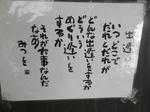 出逢い
いつどこで
だれとだれが
どんな出逢いをするか
どういう
めぐり逢いを
するか
それが大事なんだ
なあ
みつを